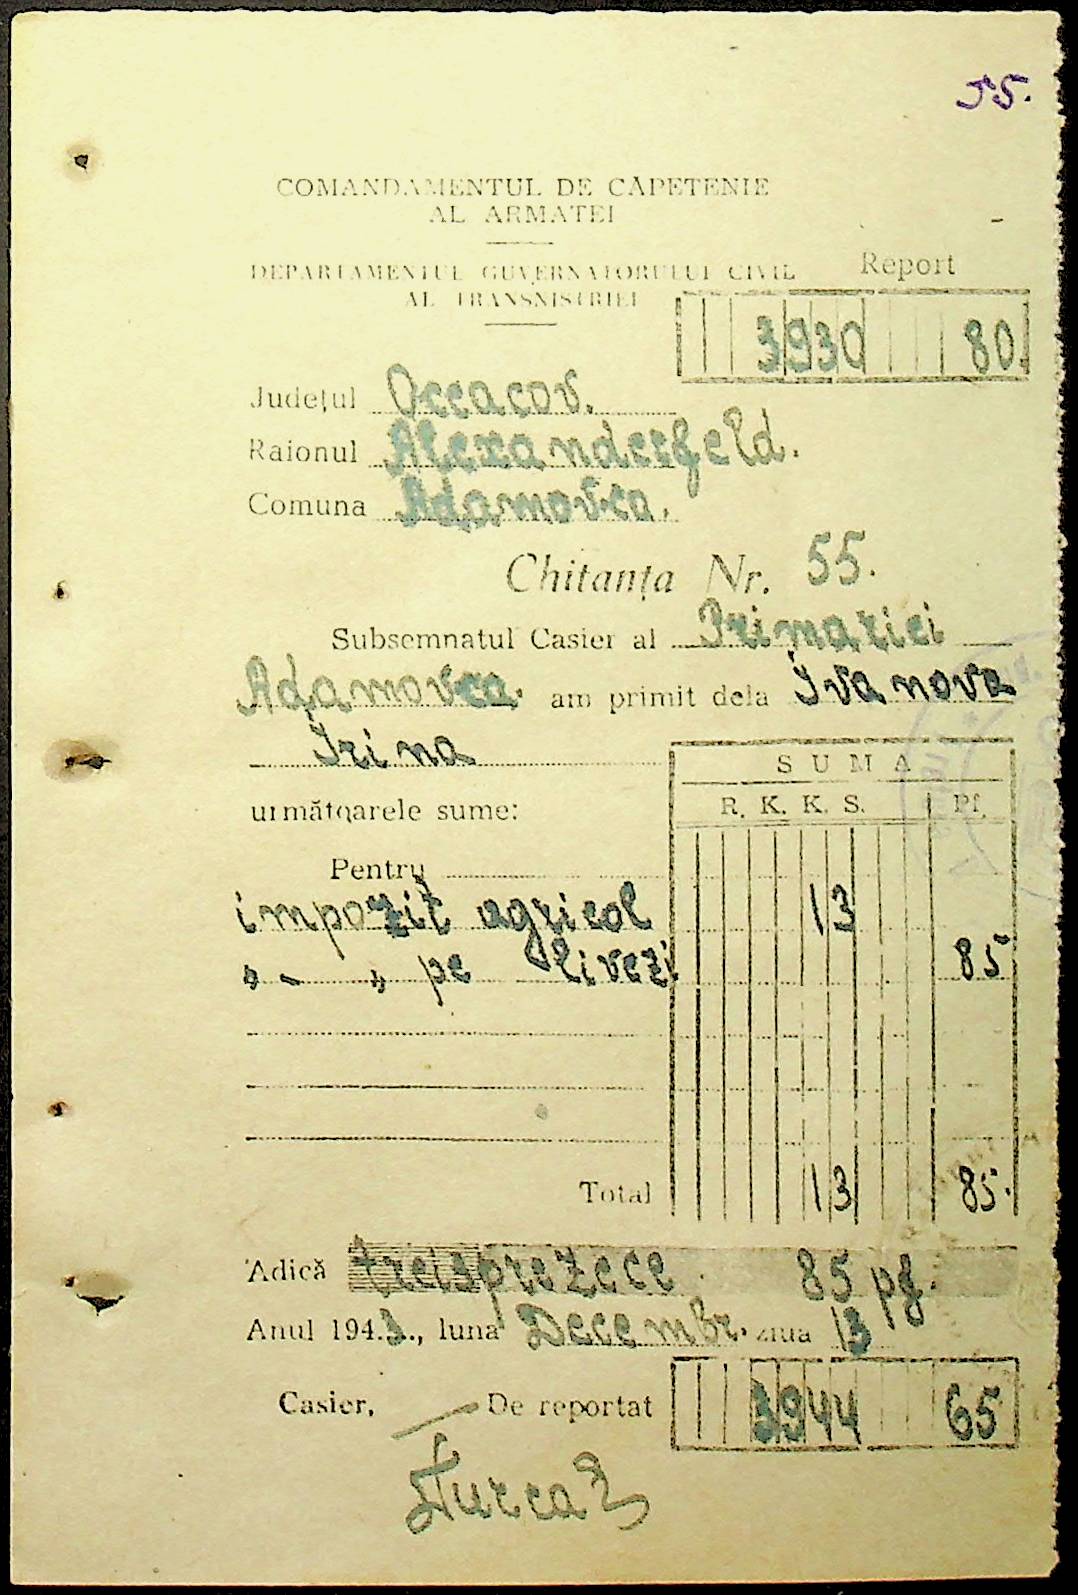 55.
COMANDAMENTUL DE CĂPETENIE
AL ARMATEI
DEPARTAMENTUL GUVERNATORULUI CIVIL
AL TRANSNISTRIEI
Report
3930 80.
Județul Occacov.
Raionul Alexanderfeld.
Comuna Adamovca.
Chitanța Nr. 55.
Subsemnatul Casier al Primariei
Adamovca. am primit dela Ivanova
Irina
SUMA
următoarele sume: R. K. K. S. Pf.
Pentru
impozit agricol 13
„ - „ pe livezi 85
Total 13 85.
Adică treisprezece 85 pf.
Anul 1943., luna Decembr. ziua 13
Casier, De reportat 3944 65